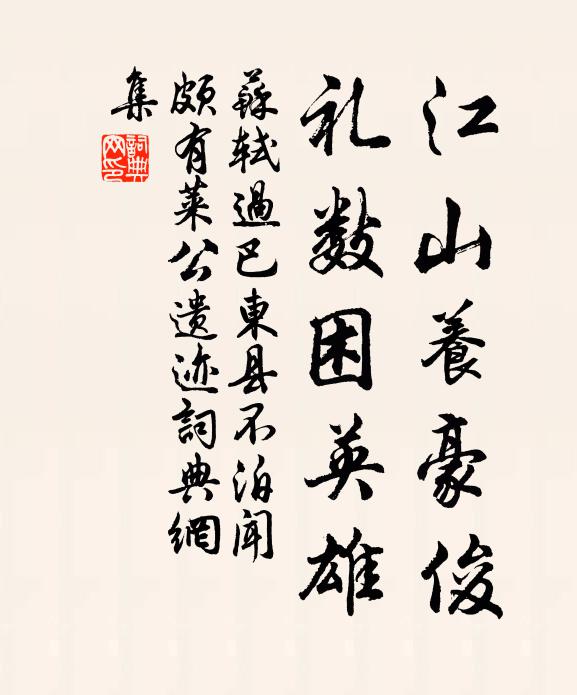 江山養豪俊
礼数困英雄
蘇軾過巴東县不泊聞
頗有莱公遗迹詞典網
集
詞典
网印